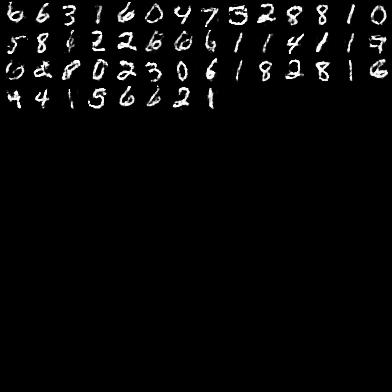 6 6 3 1 6 0 4 7 5 2 8 8 1 0
5 8 1 2 2 6 6 6 1 1 4 1 1 5
6 2 8 0 2 3 0 6 1 8 2 8 1 6
4 4 1 5 6 6 2 1